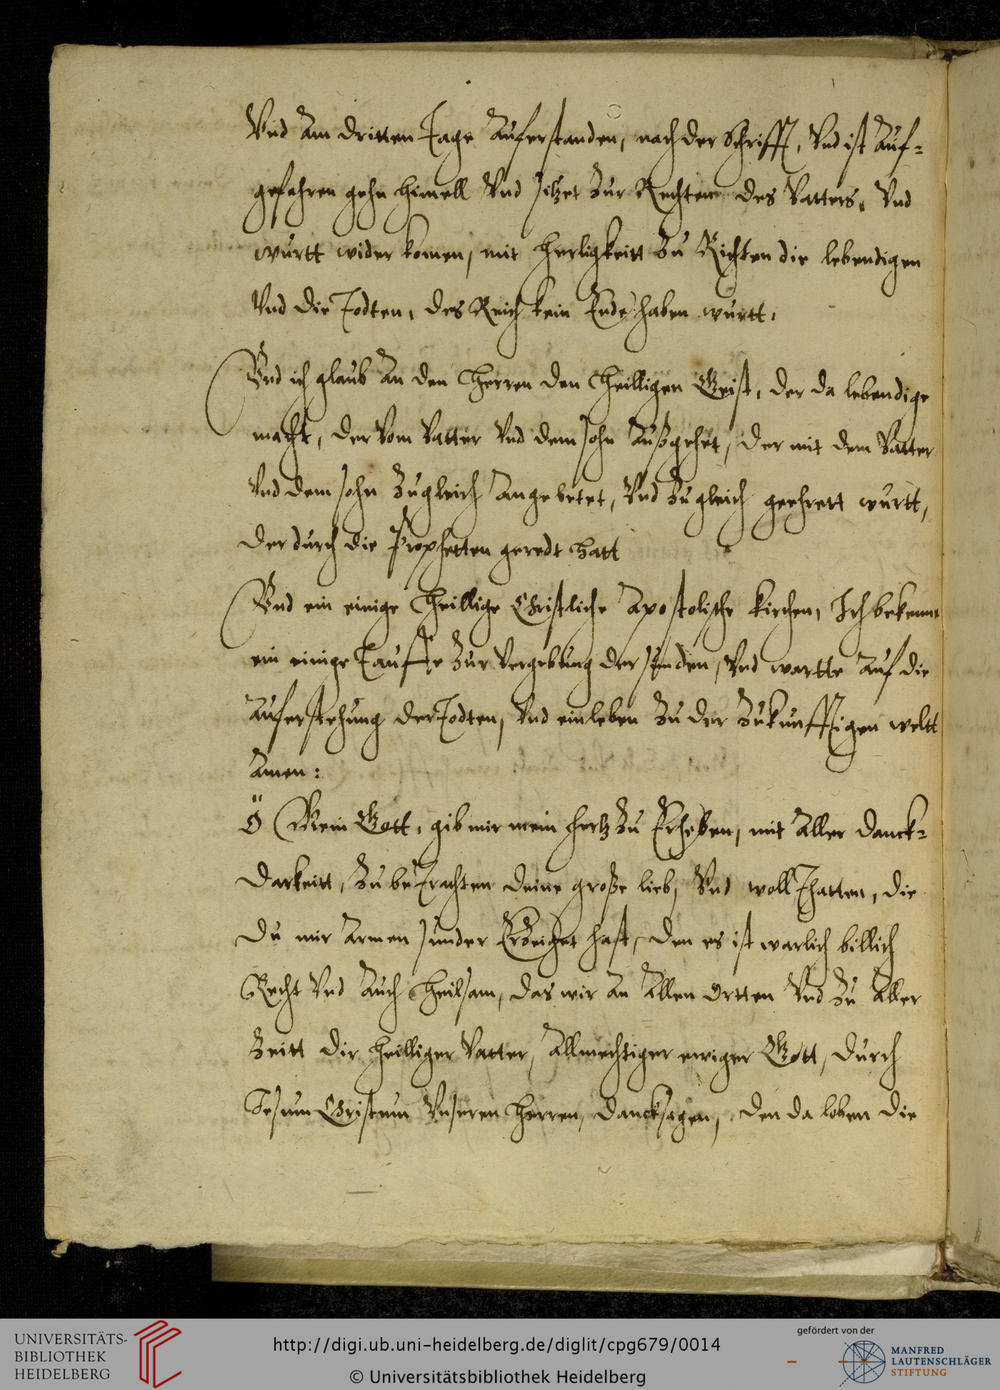 Vnd Am dritten Tage Aufferstanden, nach der schrifft, Vnd ist Auf=
gefahren gehn himell Vnd sitzet Zur Rechten des Vatters, Vnd
württ wider komen, mit herligkeitt Zu Richten die lebendigen
Vnd die Todten, des Reich kein Ende haben württ,
Vnd ich glaub An den Herren den Heilligen Geist, der da lebendige
macht, der Vom Vatter Vnd dem sohn Außgehet, der mit dem Vatter
Vnd dem sohn Zugleich Angebetet, Vnd Zugleich geehrett württ,
der durch die Prophetten geredt hatt
Vnd ein einige Heillige Christliche Apostolische kirchen, Ich bekenne
ein einige Tauffe Zur Vergebung der sünden, Vnd wartte Auf die
Auferstehung der Todten, Vnd ein leben Zu der Zukunfftigen weltt
Amen:
Ö Mein Gott, gib mir mein hertz Zu Erheben, mit Aller danck=
barkeitt, Zu beTrachten deine große lieb, Vnd wollThatten, die
du mir Armen sünder Erzeiget hast, den es ist warlich billich
Recht Vnd Auch Heilsam, das wir An Allen Ortten Vnd Zu Aller
Zeitt dir heilliger Vatter, Allmechtiger ewiger Gott, durch
Jesum Christum Vnseren herren, dancksagen, den da loben die
UNIVERSITÄTS-
BIBLIOTHEK
HEIDELBERG
http://digi.ub.uni-heidelberg.de/diglit/cpg679/0014
© Universitätsbibliothek Heidelberg
gefördert von der
MANFRED
LAUTENSCHLÄGER
STIFTUNG